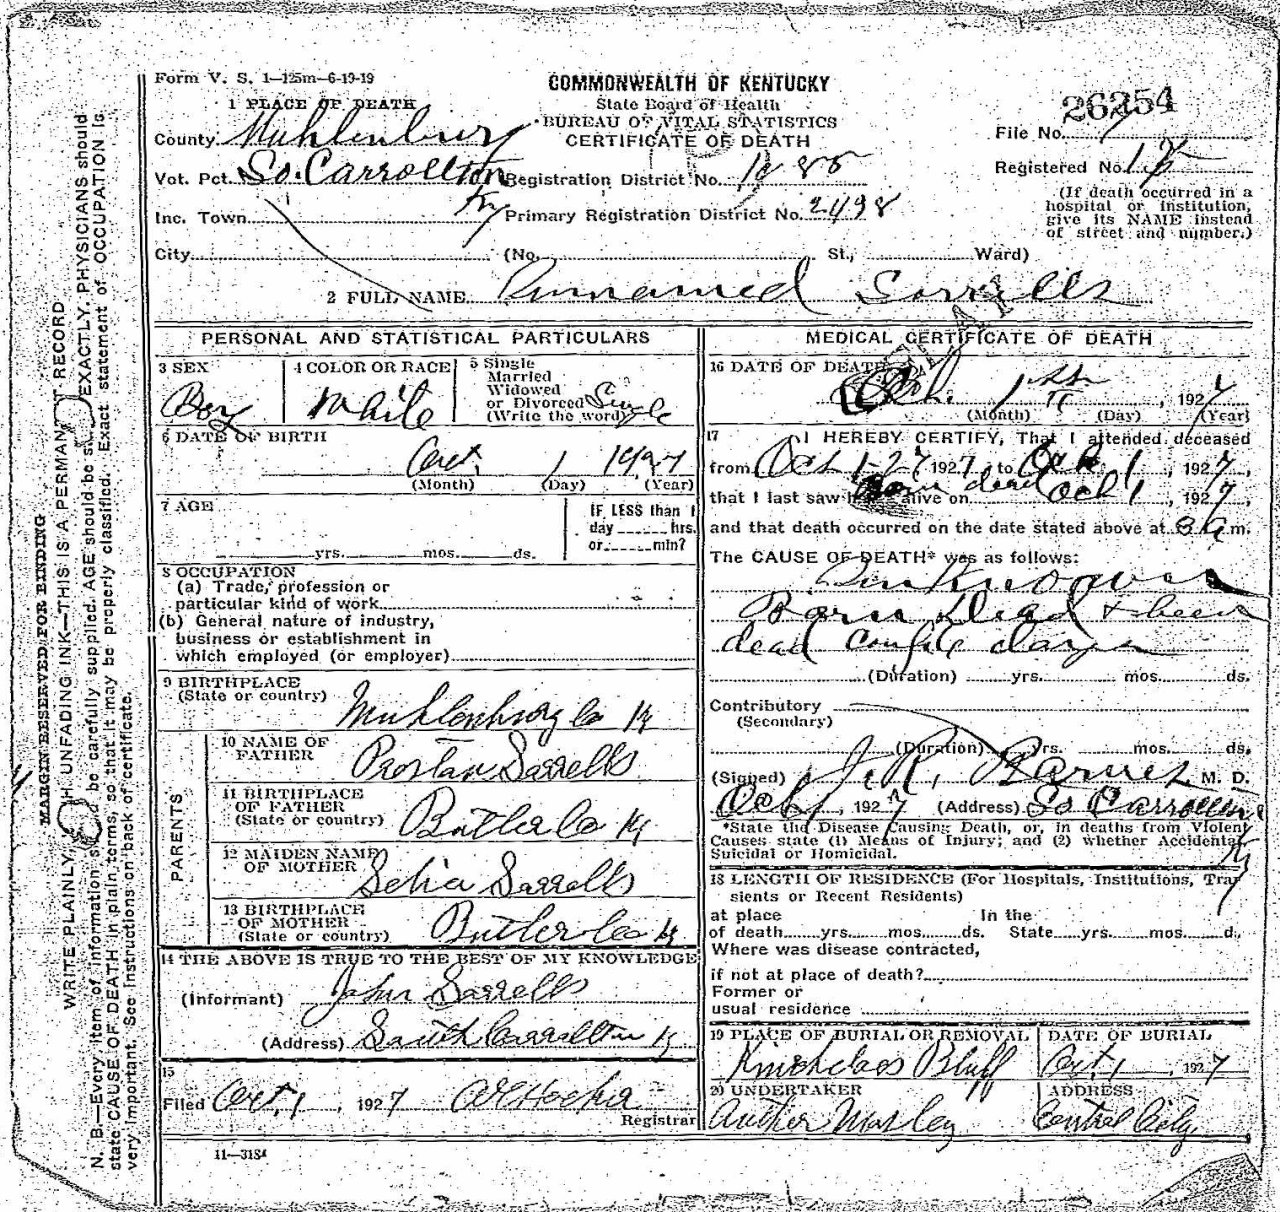 Form V. S. 1—125m—6-19-19
COMMONWEALTH OF KENTUCKY
State Board of Health
BUREAU OF VITAL STATISTICS
CERTIFICATE OF DEATH
26254
File No.
Registered No.
(If death occurred in a
hospital or institution,
give its NAME instead
of street and number.)
1 PLACE OF DEATH
County Muhlenburg
Vot. Pct. So. Carrollton Ky
Registration District No. 1085
Inc. Town
Primary Registration District No. 2498
City (No. St., Ward)
2 FULL NAME Unnamed Sorrells
PERSONAL AND STATISTICAL PARTICULARS
3 SEX Boy
4 COLOR OR RACE White
5 Single
Married
Widowed
or Divorced
(Write the word) Single
6 DATE OF BIRTH
Oct. 1 1927
(Month) (Day) (Year)
7 AGE
yrs. mos. ds.
IF LESS than 1
day hrs.
or min?
8 OCCUPATION
(a) Trade, profession or
particular kind of work
(b) General nature of industry,
business or establishment in
which employed (or employer)
9 BIRTHPLACE
(State or country) Muhlenburg Co Ky
PARENTS
10 NAME OF
FATHER Sarrells
11 BIRTHPLACE
OF FATHER
(State or country) Butler Co Ky
12 MAIDEN NAME
OF MOTHER Sarrells
13 BIRTHPLACE
OF MOTHER
(State or country) Butler Co Ky
14 THE ABOVE IS TRUE TO THE BEST OF MY KNOWLEDGE
(Informant) John Sarrells
(Address) South Carrollton Ky
15
Filed Oct. 1, 1927
Registrar
11—3184
MEDICAL CERTIFICATE OF DEATH
16 DATE OF DEATH
Oct. 1st, 1927
(Month) (Day) (Year)
17 I HEREBY CERTIFY, That I attended deceased
from Oct 1-27 1927, to Oct 1, 1927,
that I last saw h alive on Born dead Oct 1, 1927,
and that death occurred on the date stated above at 3 a m.
The CAUSE OF DEATH* was as follows:
Unknown
Born Dead + been
dead couple days
(Duration) yrs. mos. ds.
Contributory
(Secondary)
(Duration) yrs. mos. ds.
(Signed) J. R. Barnes M. D.
Oct 1, 1927 (Address) So Carrollton Ky
*State the Disease Causing Death, or, in deaths from Violent
Causes state (1) Means of Injury; and (2) whether Accidental,
Suicidal or Homicidal.
18 LENGTH OF RESIDENCE (For Hospitals, Institutions, Tran
sients or Recent Residents)
at place In the
of death yrs. mos. ds. State yrs. mos. d.
Where was disease contracted,
if not at place of death?
Former or
usual residence
19 PLACE OF BURIAL OR REMOVAL
Bluff
DATE OF BURIAL
Oct. 1, 1927
20 UNDERTAKER
ADDRESS
Central City
MARGIN RESERVED FOR BINDING
WRITE PLAINLY, WITH UNFADING INK—THIS IS A PERMANENT RECORD
N. B.—Every item of information should be carefully supplied. AGE should be stated EXACTLY. PHYSICIANS should
state CAUSE OF DEATH in plain terms, so that it may be properly classified. Exact statement of OCCUPATION is
very important. See instructions on back of certificate.